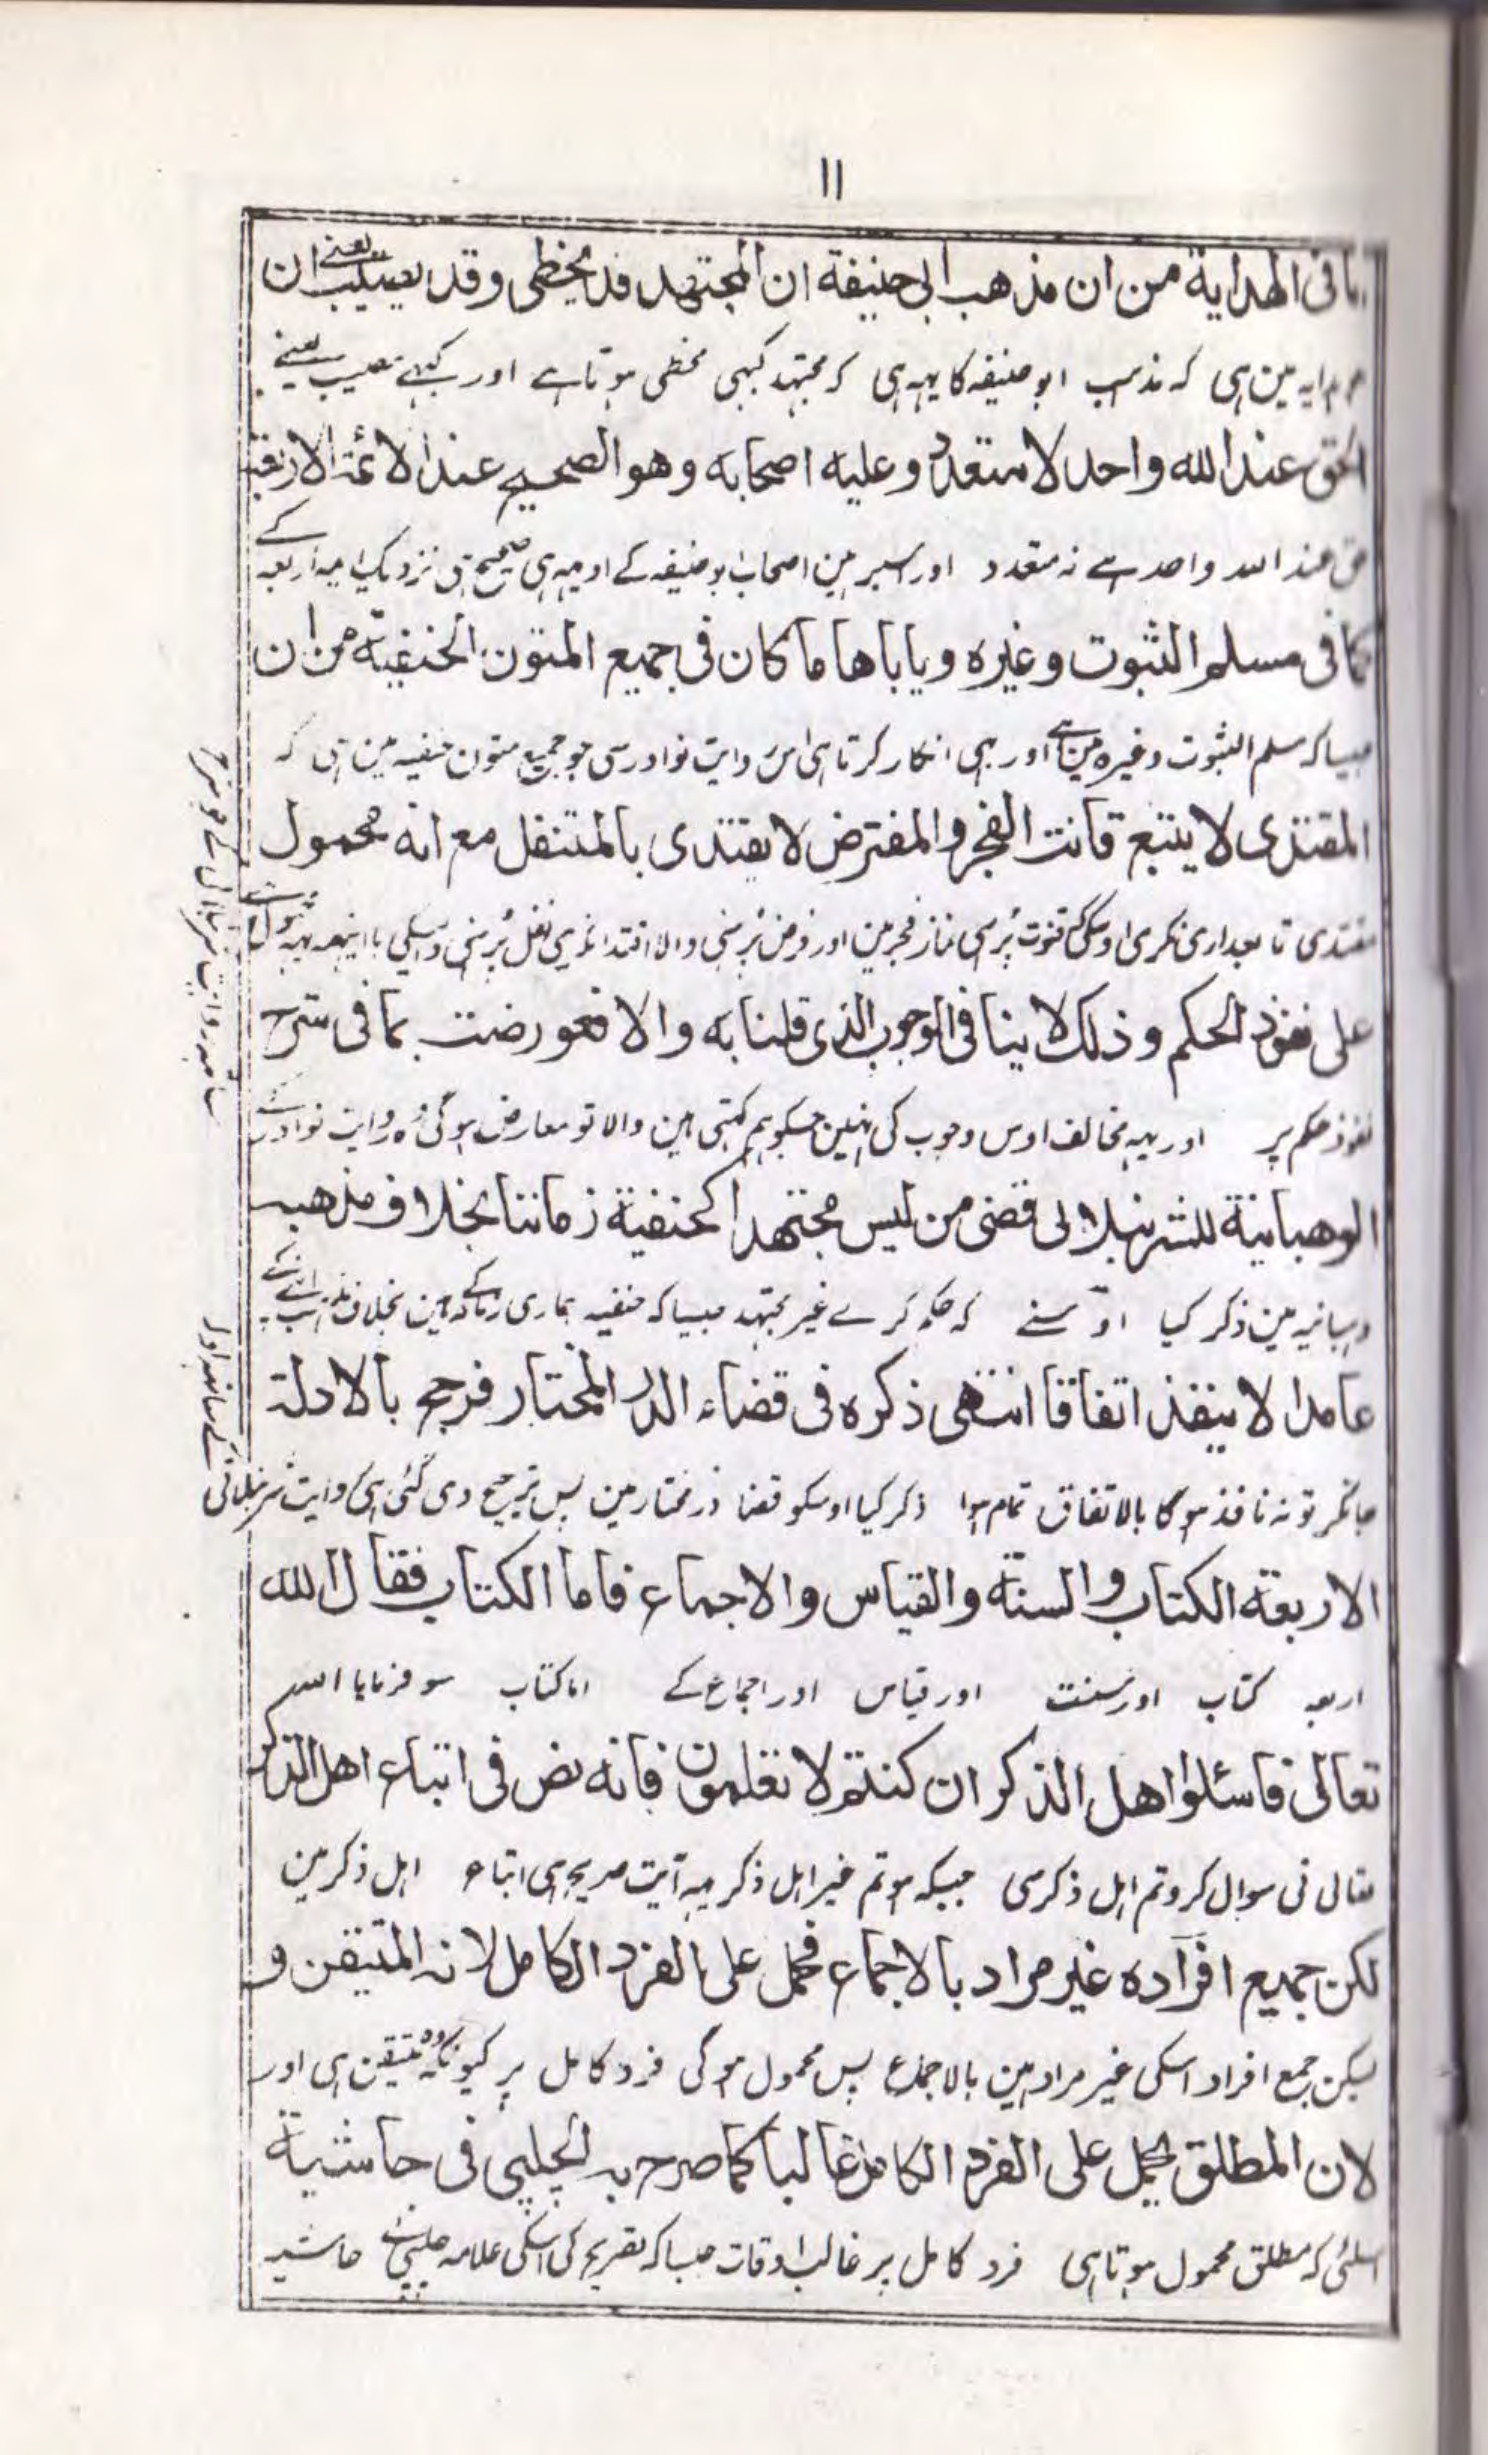 ۱۱
ما فی الهدایة من ان مذهب ابی حنیفة ان المجتهد قد یخطی وقد یصیب یعنے ان
ہدایہ مین ہی کہ مذہب ابو حنیفہ کا یہہ ہی کہ مجتہد کبہی مخطی ہوتا ہے اور کبہے مصیب یعنے
الحق عند الله واحد لا متعدد وعلیه اصحابه وهو الصحیح عند الائمة الاربعة
حق عند اللہ واحد ہے نہ متعدد اور اسپر ہین اصحاب ابو حنیفہ کے اور یہہ ہی صحیح ہی نزدیک ایمہ اربعہ کے
کما فی مسلم الثبوت وغیره ویاباها ما کان فی جمیع المتون الحنفیة من ان
جیسا کہ مسلم الثبوت وغیرہ مین ہے اور یہی انکار کرتا ہی اس روایت نوادر سی جو جمیع متون حنفیہ مین ہی کہ
المقتدی لا یتبع قانت الفجر والمفترض لا یقتدی بالمتنفل مع انه محمول
مقتدی تابعداری نکری اوسکی قنوت پڑہی نماز فجر مین اور فرض پڑہنی والا اقتدا نکری نفل پڑہنی والیکی باینہمہ یہہ محمول ہے
علی نفوذ الحکم وذلک لا ینافی الوجوب الذی قلنا به والا فعورضت بما فی شرح
نفوذ حکم پر اور یہہ مخالف اوس وجوب کی نہین جسکو ہم کہتی ہین والا تو معارض ہوگی وہ روایت نوادر کے
الوهبانیة للشرنبلالی قضی من لیس مجتهدا کحنفیة زماننا بخلاف مذهبه
وہبانیہ مین ذکر کیا اوسنے کہ حکم کرے غیر مجتہد جیسا کہ حنفیہ ہماری زمانہ کے ہین بخلاف مذہب اپنے کے
عامدا لا ینفذ اتفاقا انتهی ذکره فی قضاء الدر المختار فرجح بالادلة
جانکر تو نہ نافذ ہوگا بالاتفاق تمام ہوا ذکر کیا اوسکو قضا در مختار مین پس ترجیح دی گئی ہی روایت شرنبلالی
الاربعة الکتاب والسنة والقیاس والاجماع فاما الکتاب فقال الله
اربعہ کتاب اور سنت اور قیاس اور اجماع کے اما کتاب سو فرمایا اللہ
تعالی فاسئلوا اهل الذکر ان کنتم لا تعلمون فانه نص فی اتباع اهل الذکر
تعالی نی سوال کرو تم اہل ذکر سی جبکہ ہو تم غیر اہل ذکر یہہ آیت صریح ہی اتباع اہل ذکر مین
لکن جمیع افراده غیر مراد بالاجماع فحمل علی الفرد الکامل لانه المتیقن و
لیکن جمع افراد اسکی غیر مراد ہین بالاجماع پس محمول ہوگی فرد کامل پر کیونکہ وہ متیقن ہی اور
لان المطلق یحمل علی الفرد الکامل غالبا کما صرح به الچلپی فی حاشیة
اسلئی کہ مطلق محمول ہوتا ہی فرد کامل پر غالب اوقات جیسا کہ تصریح کی اسکی علامہ چلپی نے حاشیہ
ساتہہ روایت شرنبلالی کے جو شرح
کے ساتہہ ادلہ